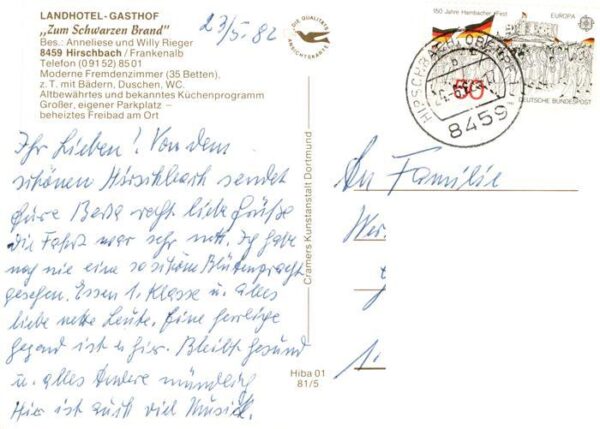 LANDHOTEL-GASTHOF
„Zum Schwarzen Brand"
Bes.: Anneliese und Willy Rieger
8459 Hirschbach / Frankenalb
Telefon (09152) 8501
Moderne Fremdenzimmer (35 Betten),
z. T. mit Bädern, Duschen, WC.
Altbewährtes und bekanntes Küchenprogramm
Großer, eigener Parkplatz –
beheiztes Freibad am Ort
23/5. 82
DIE QUALITÄTS
ANSICHTSKARTE
Ihr Lieben! Von dem
schönen Hirschbach sendet
Eure Berta recht liebe Grüße
Die Fahrt war sehr nett. Ich habe
noch nie eine so schöne Blütenpracht
gesehen. Essen 1. Klasse u. alles
liebe nette Leute. Eine herrliche
Gegend ist hier. Bleibt gesund
u. alles Andere mündlich
Hier ist auch viel Musik.
Cramers Kunstanstalt Dortmund
Hiba 01
81/5
150 Jahre Hambacher Fest
EUROPA
50
DEUTSCHE BUNDESPOST
HIRSCHBACH, OBERPF
8459
An Familie
Wer
1.